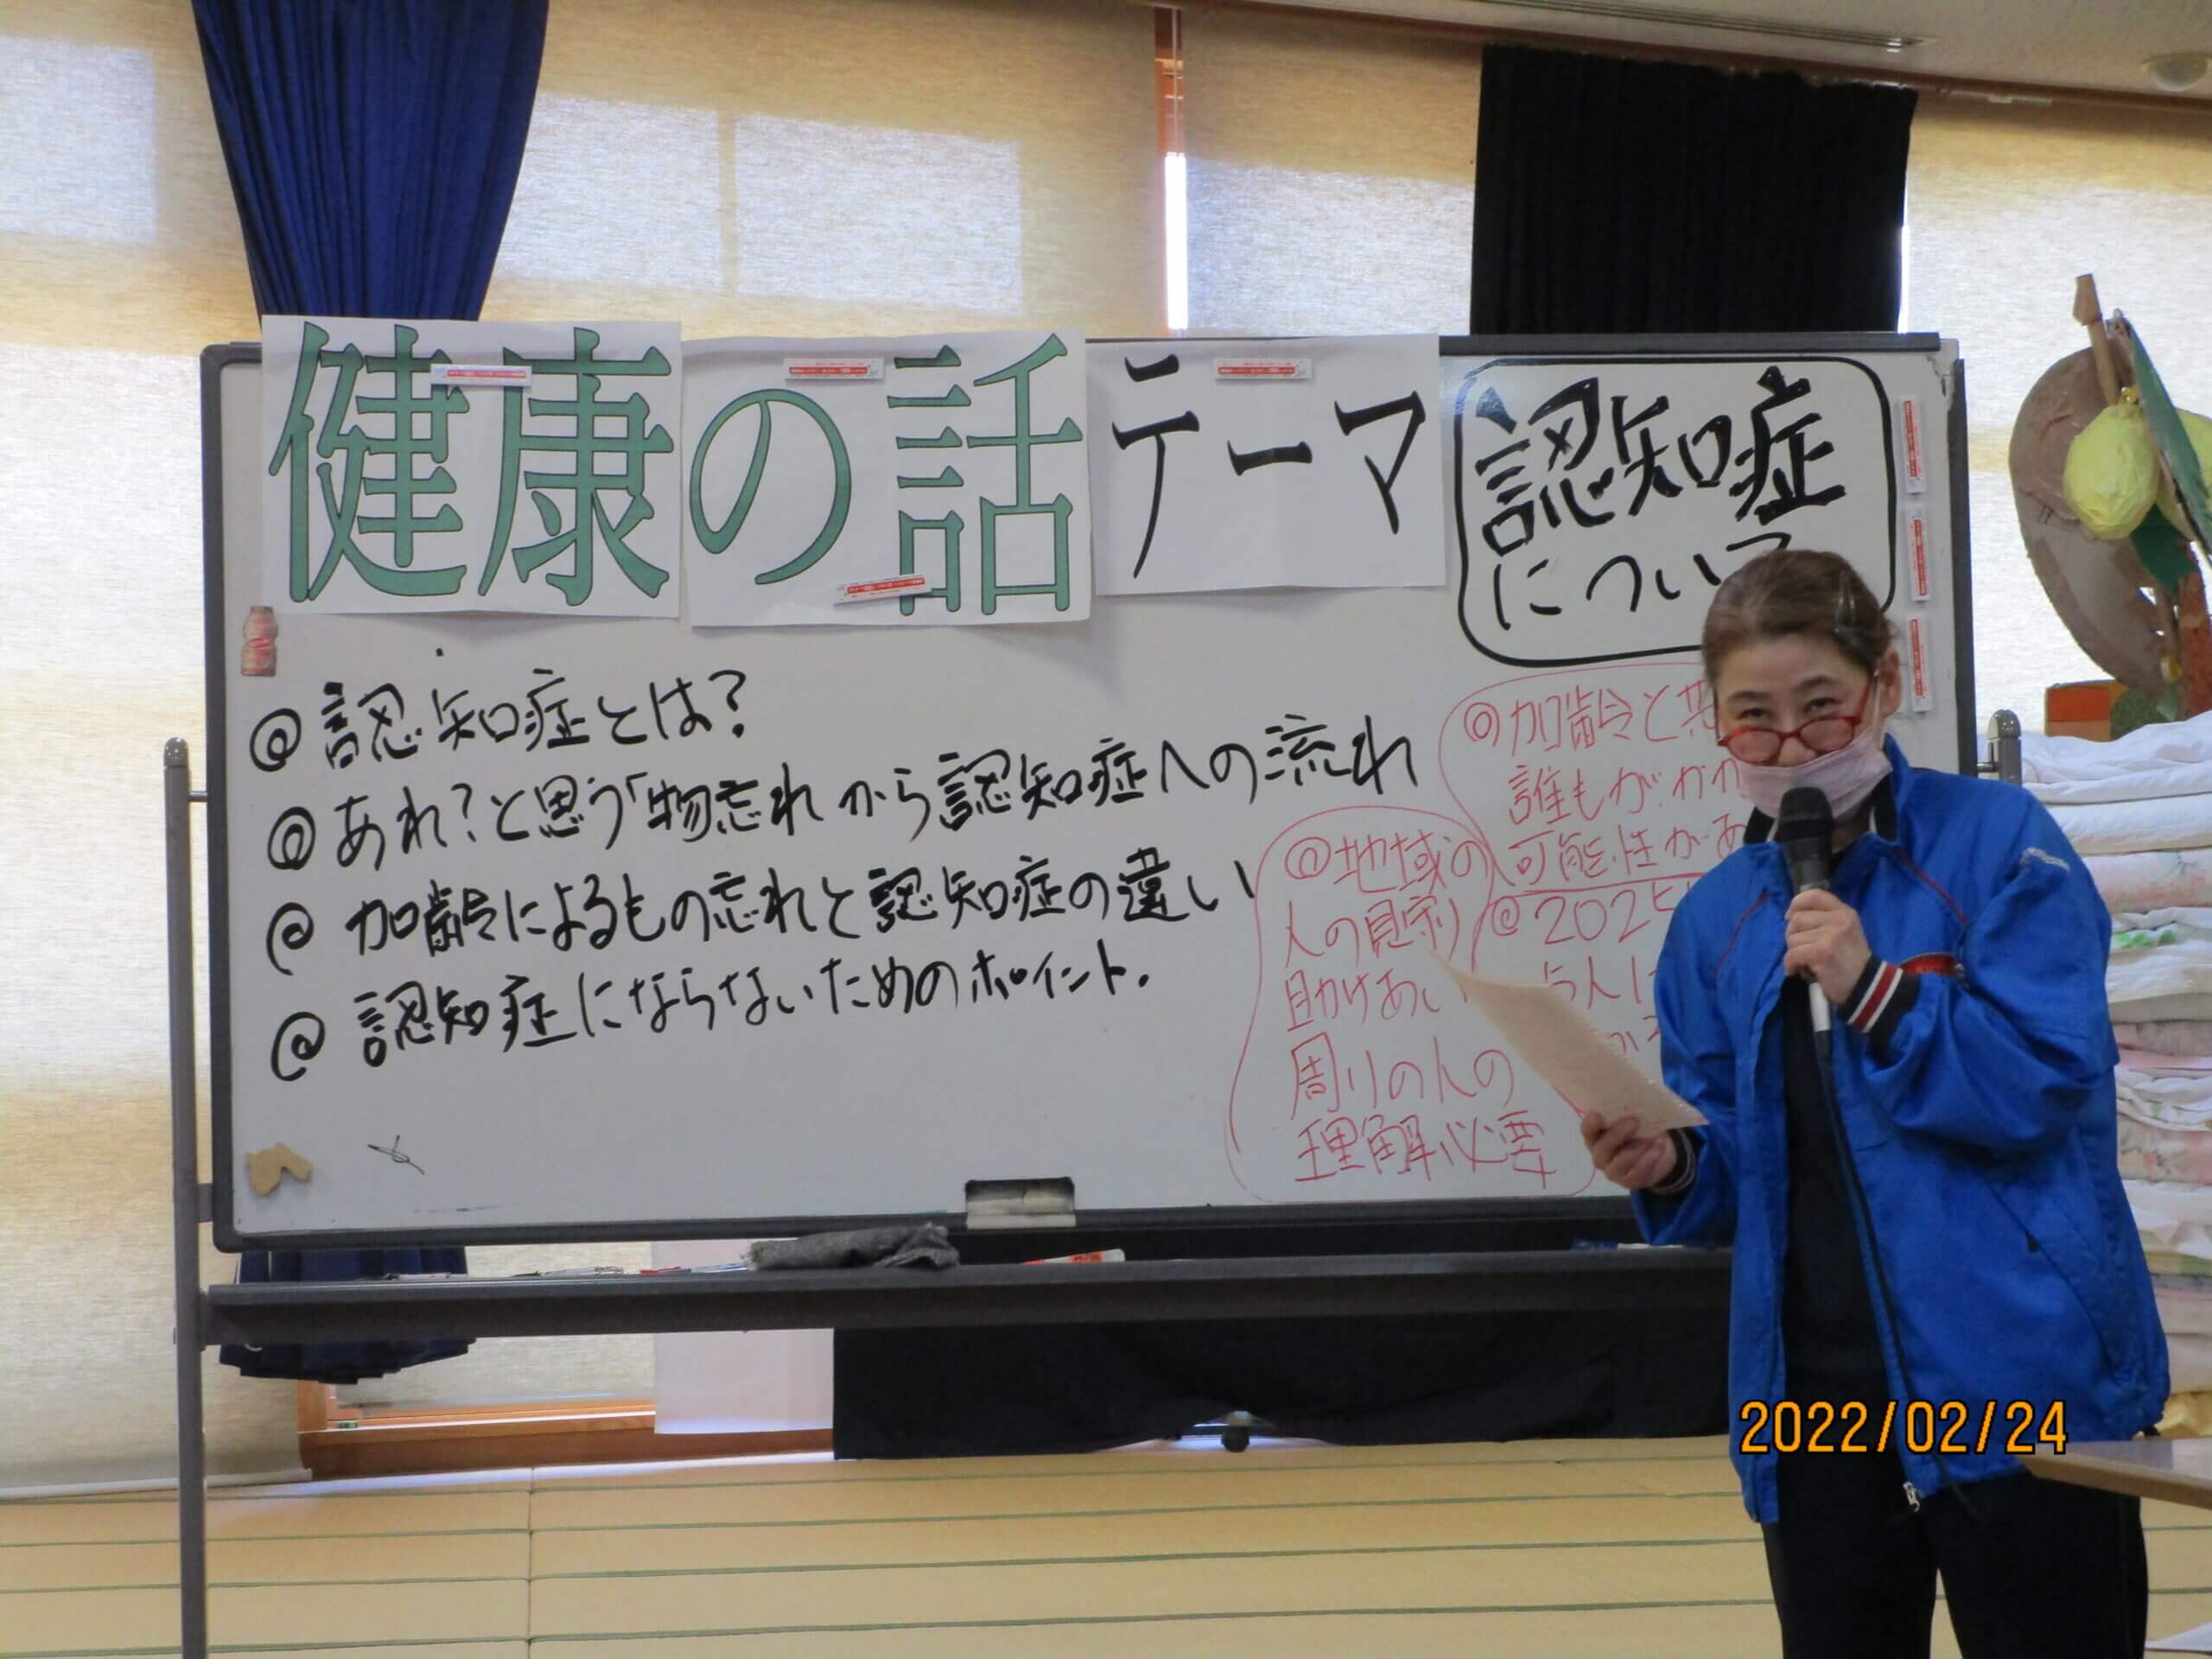 健康の話 テーマ 認知症
について
@ 認知症とは?
@ あれ?と思う「物忘れから認知症への流れ
@ 加齢によるもの忘れと認知症の違い
@ 認知症にならないためのポイント.
◎加齢と共
誰もがかか
可能性があ
@ 2025
人に
@地域の
人の見守り
助けあい
周りの人の
理解必要
2022/02/24